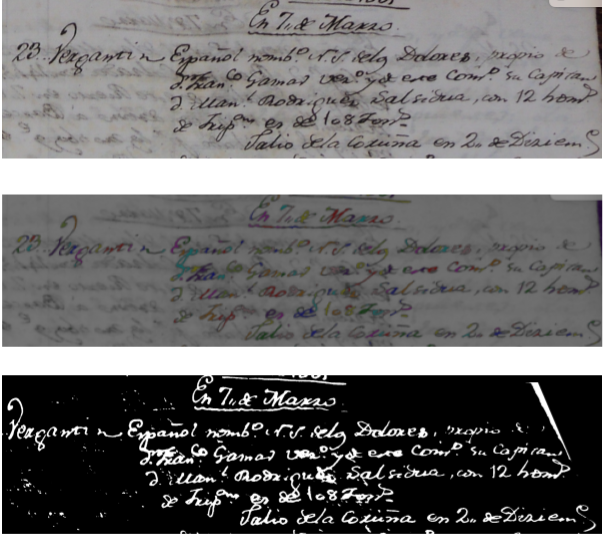 En 7,, de Marzo
23. Vergantin Español nomb.º N. S. de los Dolores, propio de
D. Fran.co Gamas vez.º y de este Com.º su Capitan
D. Man.l Rodriguez Salsidua, con 12 hom.s
de Trip.on es de 108 Ton.s
Salio de la Coruña en 2,, de Diziem
En 7,, de Marzo
23. Vergantin Español nomb.º N. S. de los Dolores, propio de
D. Fran.co Gamas vez.º y de este Com.º su Capitan
D. Man.l Rodriguez Salsidua, con 12 hom.s
de Trip.on es de 108 Ton.s
Salio de la Coruña en 2,, de Diziem
En 7,, de Marzo
Vergantin Español nomb.º N. S. de los Dolores, propio de
D. Fran.co Gamas vez.º y de este Com.º su Capitan
D. Man.l Rodriguez Salsidua, con 12 hom.s
de Trip.on es de 108 Ton.s
Salio de la Coruña en 2,, de Diziem